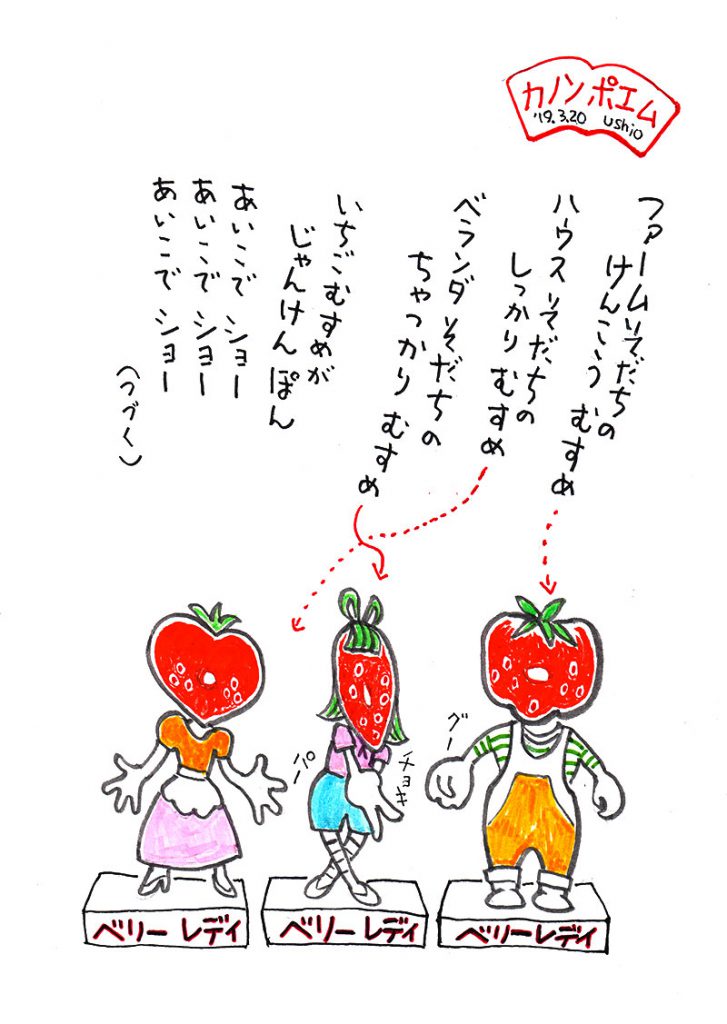 カノンポエム
'19.3.20 ushio
ファームそだちの
けんこう むすめ
ハウスそだちの
しっかり むすめ
ベランダ そだちの
ちゃっかり むすめ
いちごむすめが
じゃんけん ぽん
あいこで ショー
あいこで ショー
あいこで ショー
(つづく)
グー
チョキ
パー
ベリーレディ
ベリーレディ
ベリーレディ